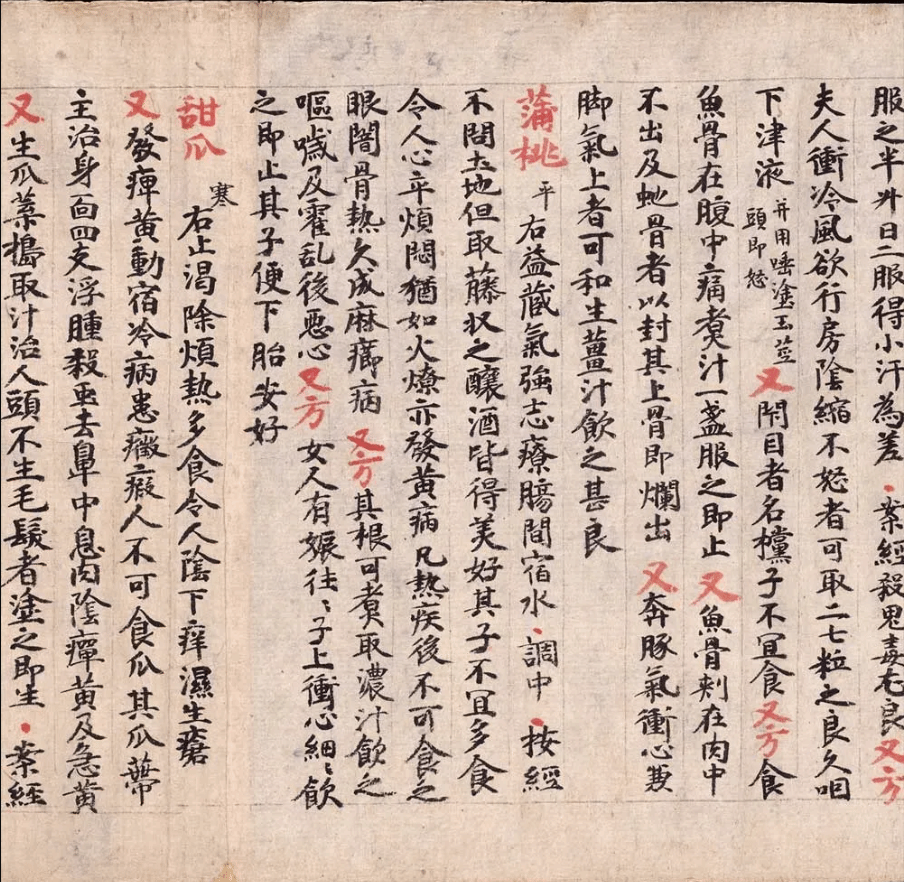 服之半升日二服得小汗為差・案經殺鬼毒尤良又方
夫人衝冷風欲行房陰縮不怒者可取二七粒之良久咽
下津液并用唾塗玉莖頭即怒又閇目者名欓子不冝食又方食
魚骨在腹中痛煑汁一盞服之即止又魚骨刾在肉中
不出及虵骨者以封其上骨即爛出又奔豚氣衝心兼
脚氣上者可和生薑汁飲之甚良
蒲桃平右益藏氣強志療腸間宿水・調中・按經
不問土地但取藤収之釀酒皆得美好其子不冝多食
令人心卒煩悶猶如火燎亦發黃病凡熱疾後不可食之
眼闇骨熱久成麻癤病又方其根可煑取濃汁飲之
嘔噦及霍乱後惡心又方女人有娠往〻子上衝心細〻飲
之即止其子便下胎安好
甜瓜寒右止渴除煩熱多食令人陰下痒濕生瘡
又發痺黃動宿冷病患癥瘕人不可食瓜其瓜蔕
主治身面四支浮腫殺䖝去鼻中息肉陰癉黃及急黃
又生瓜葉搗取汁治人頭不生毛髮者塗之即生・案經